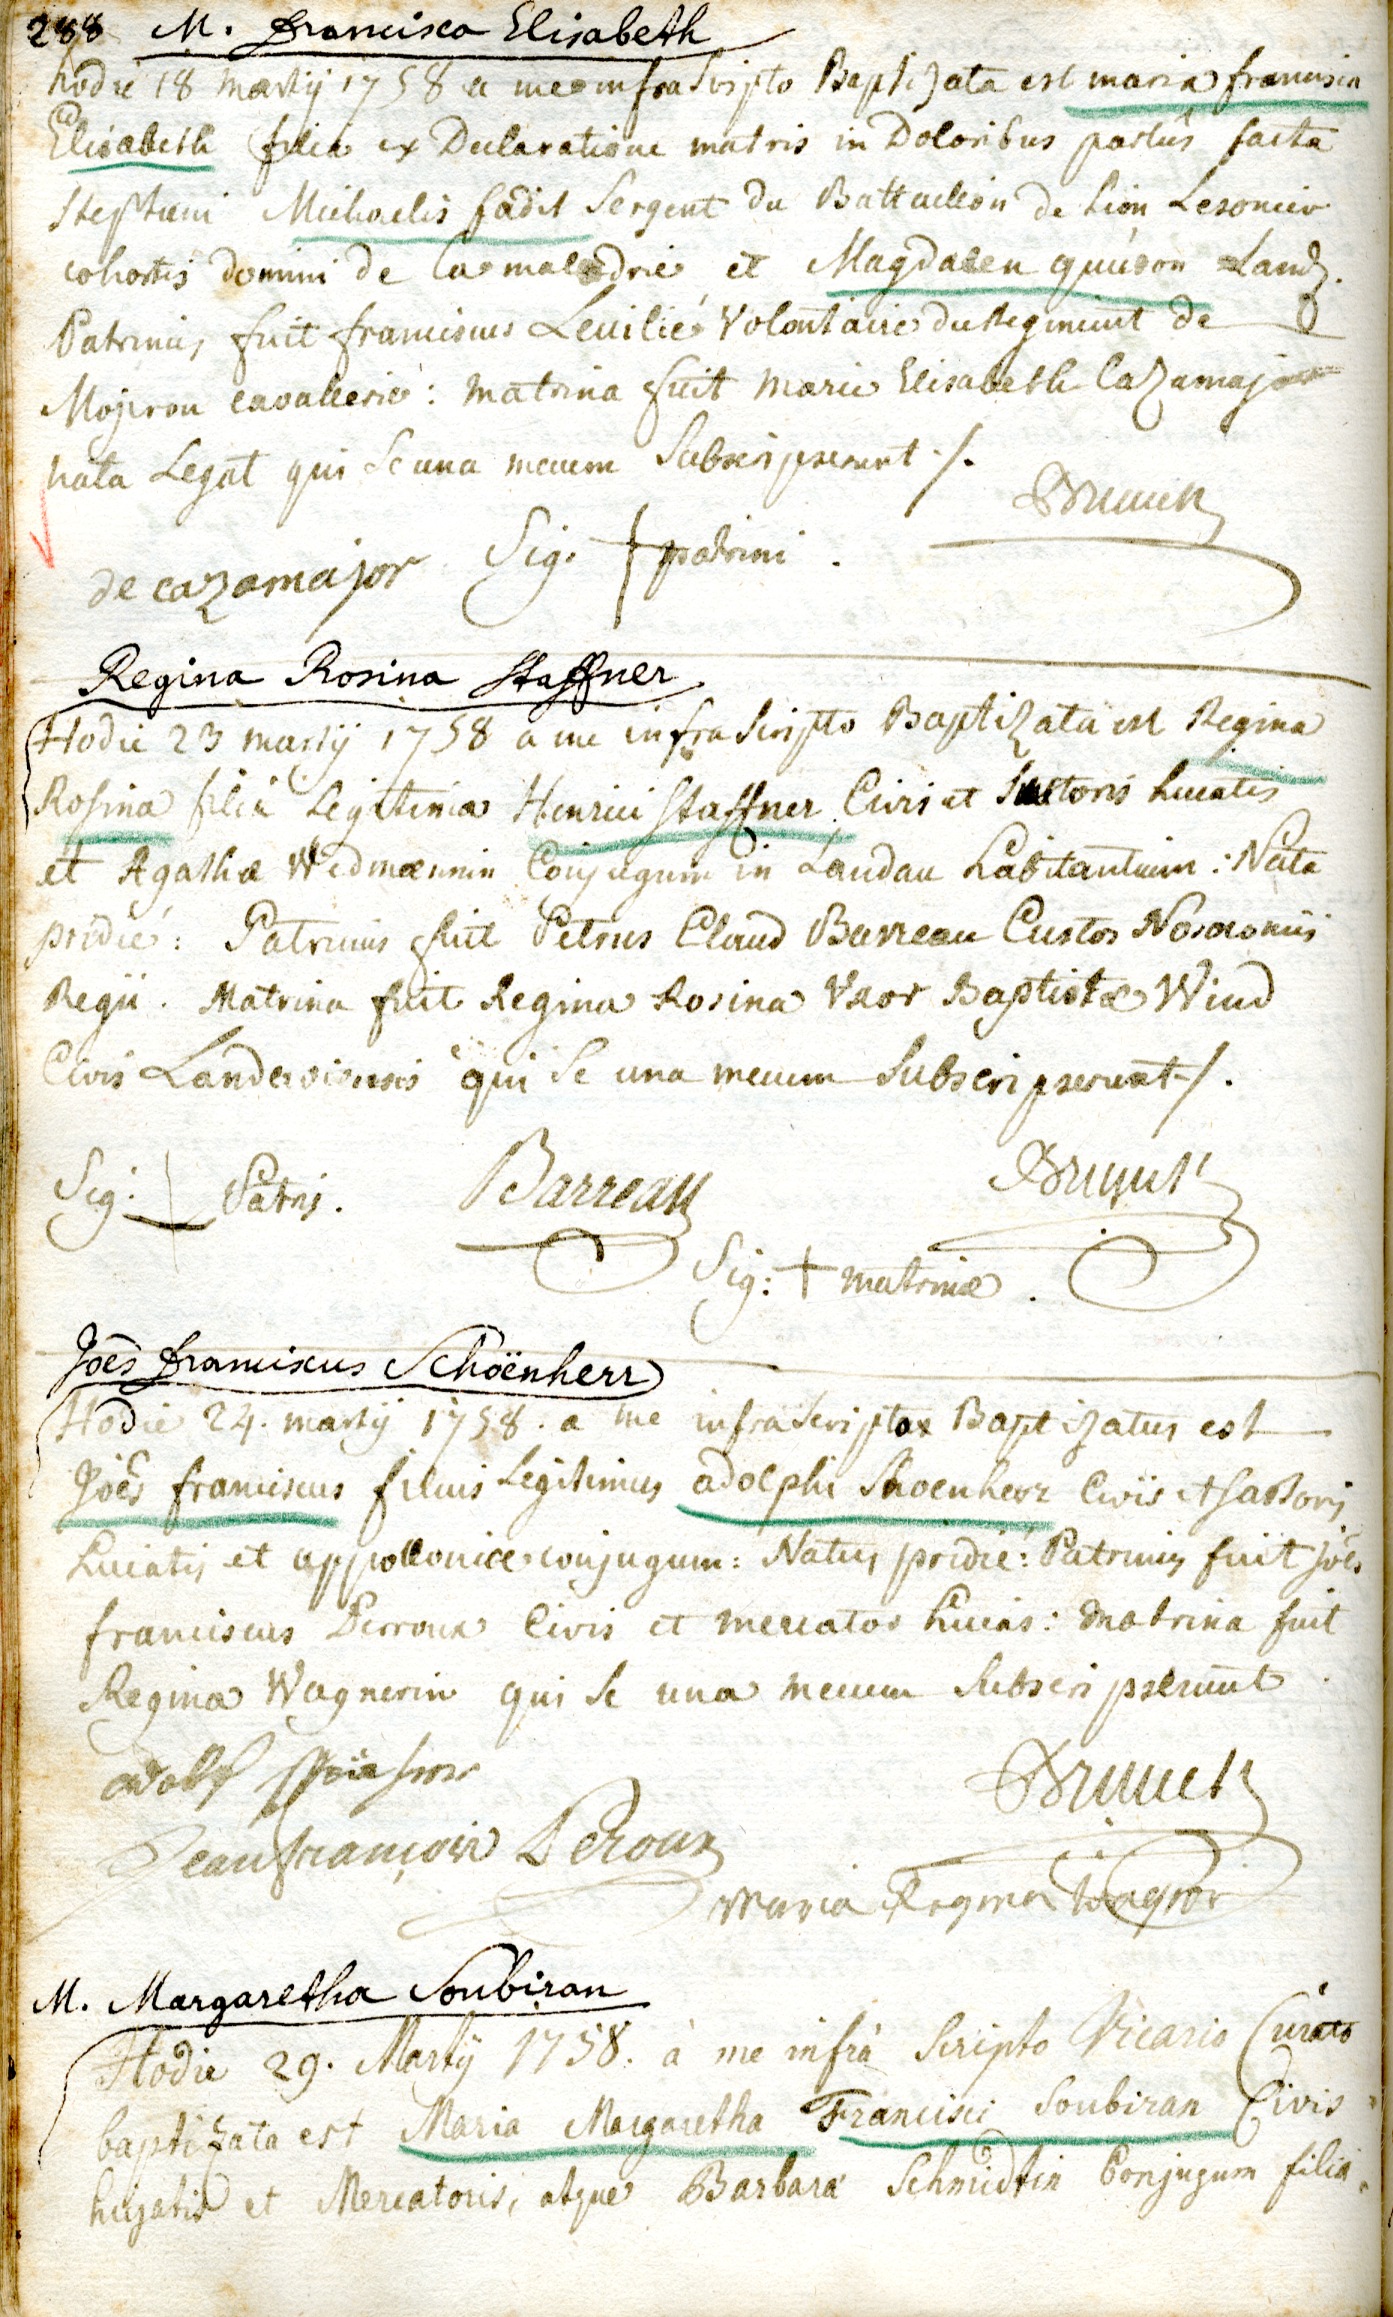 288 M. Francisca Elisabeth
hodie 18 Martij 1758 a me infra scripto Baptizata est maria francisca
Elisabeth filia ex Declaratione matris in Doloribus partûs facta
Stephani Michaelis fadit Sergent du Battaellon de Lion
cohortis domini de et Magdalen
Patrinus fuit franciscus Leuilié Volontaire du Regiment de
cavallerie : matrina fuit Marie Elisabeth Cazamajor
nata Legat qui se una mecum Subscripserunt ./.
Brunck
de cazamajor Sig. + patrini .
Regina Rosina Staffner
Hodie 23 martij 1758 a me infra Scripto Baptizata est Regina
Rosina filia Legitima Henrici Staffner Civis et Sutoris huiatis
et Agathæ Widmannin Conjugum in Landau habitantium : Nata
pridie : Patrinus fuit Petrus Claud Barreau Custos Nosocomii
Regii . Matrina fuit Regina Rosina Uxor Baptistæ Wind
Civis Landaviensis qui se una mecum Subscripserunt ./.
Sig: + Patris . Barreau Brunck
Sig: + matrinæ .
Joês Franciscus Schöenherr
Hodie 24. martij 1758. a me infrascripto Baptizatus est
Joês franciscus filius Legitimus adolphi Shoenherr Civis et sartoris
huiatis et appolloniæ conjugum : Natus pridie : Patrinus fuit Joês
franciscus Derroux Civis et mercator huias : matrina fuit
Regina Wagnerin qui se una mecum Subscripserunt
adolf Brunck
Jean françois Deroux
Maria Regina Wagner
M. Margaretha Soubiran
Hodie 29. Martij 1758. à me infrà Scripto Vicario Curato
baptizata est Maria Margaretha Francisci Soubiran Civis
hujatis et Mercatoris, atque Barbara Schmidtin Conjugum filia.